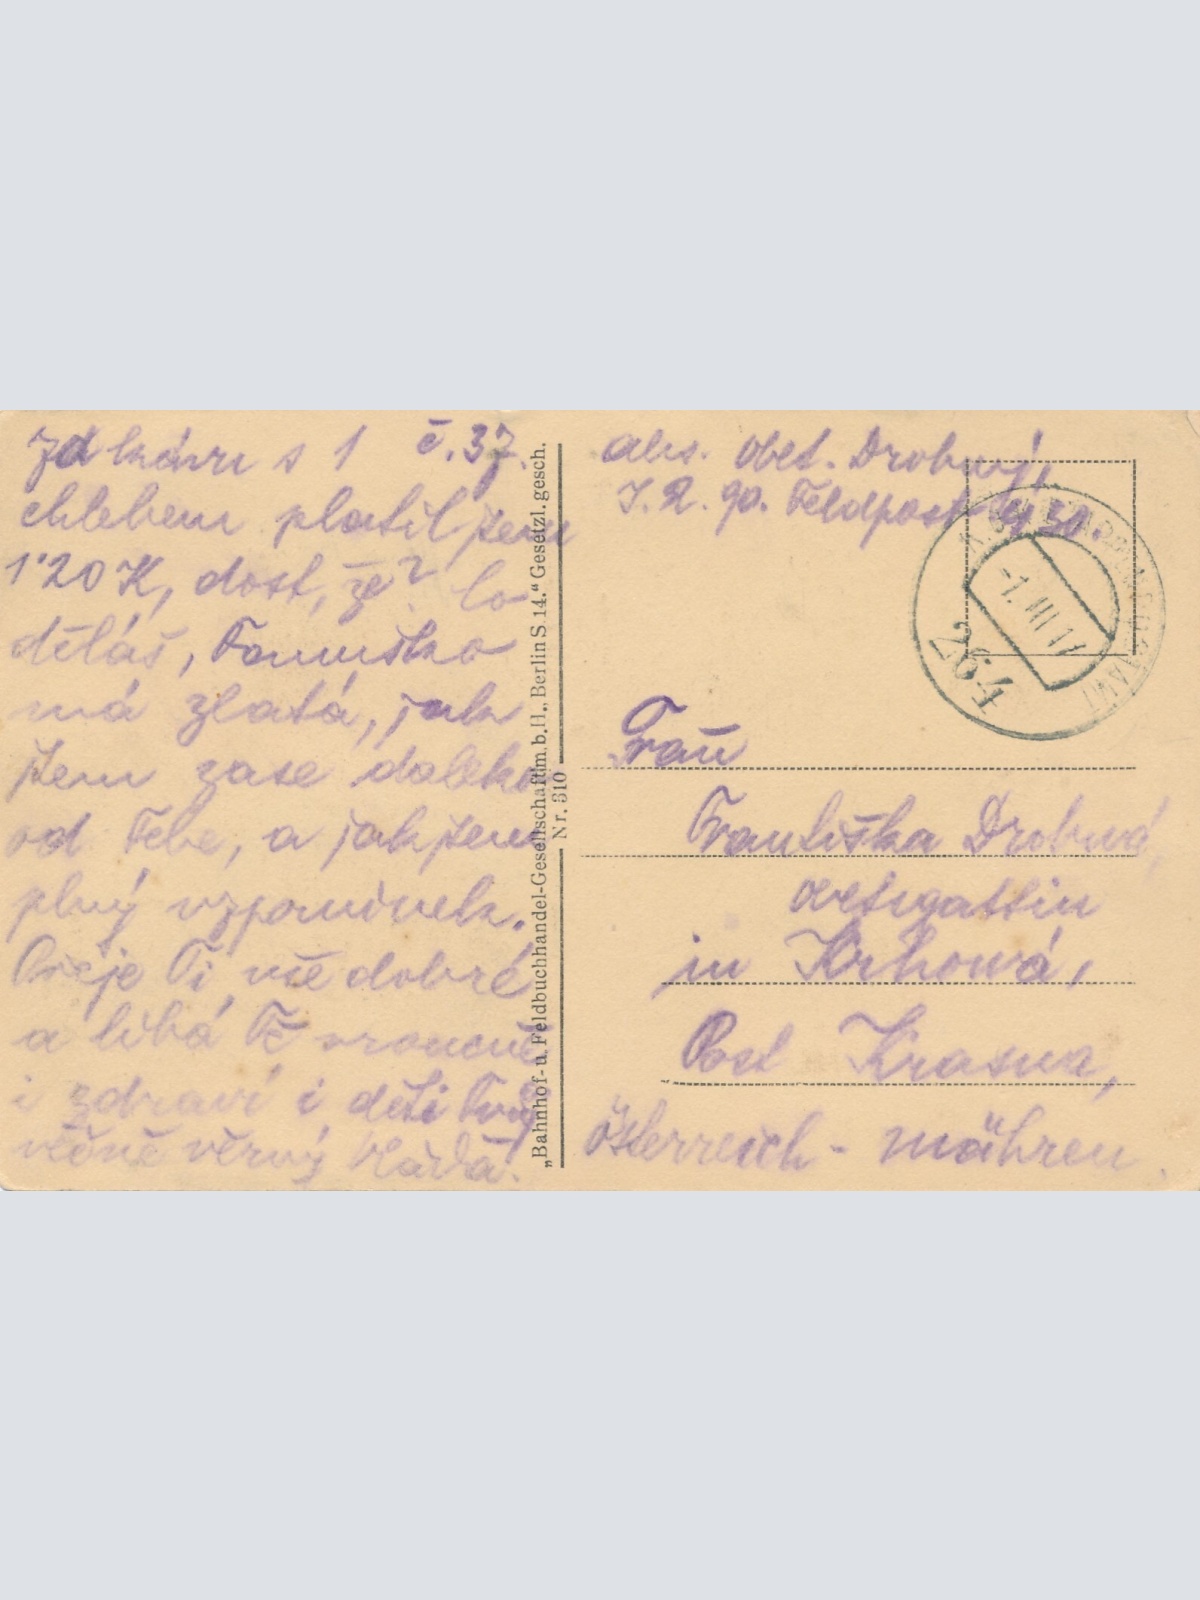 Za kávu s 1 č. 37.
chlebem platil jsem
1'20 K, dost, že? Co
děláš, Fanuško
má zlatá, jak
jsem zase daleko
od Tebe, a jak jsem
plný vzpomínek.
Přeje Ti vše dobré
a líbá Tě vroucně
i zdraví i děti Tvůj
věčně věrný Vláďa.
„Bahnhof- u. Feldbuchhandel-Gesellschaft m. b. H., Berlin S 14." Gesetzl. gesch.
Nr. 310
abs. Drobný,
I. R. 90. Feldpost 430.
-1. III 17
264
Frau
Františka Drobná,
in Krhová,
Post Krasna,
Österreich - mähren.